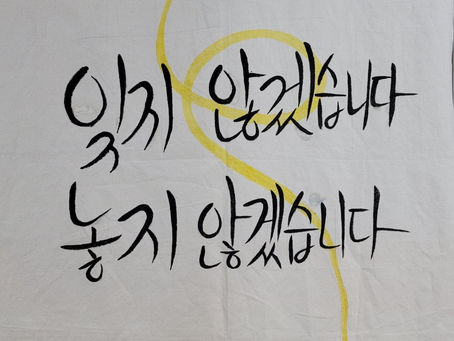 잊지 않겠습니다
놓지 않겠습니다